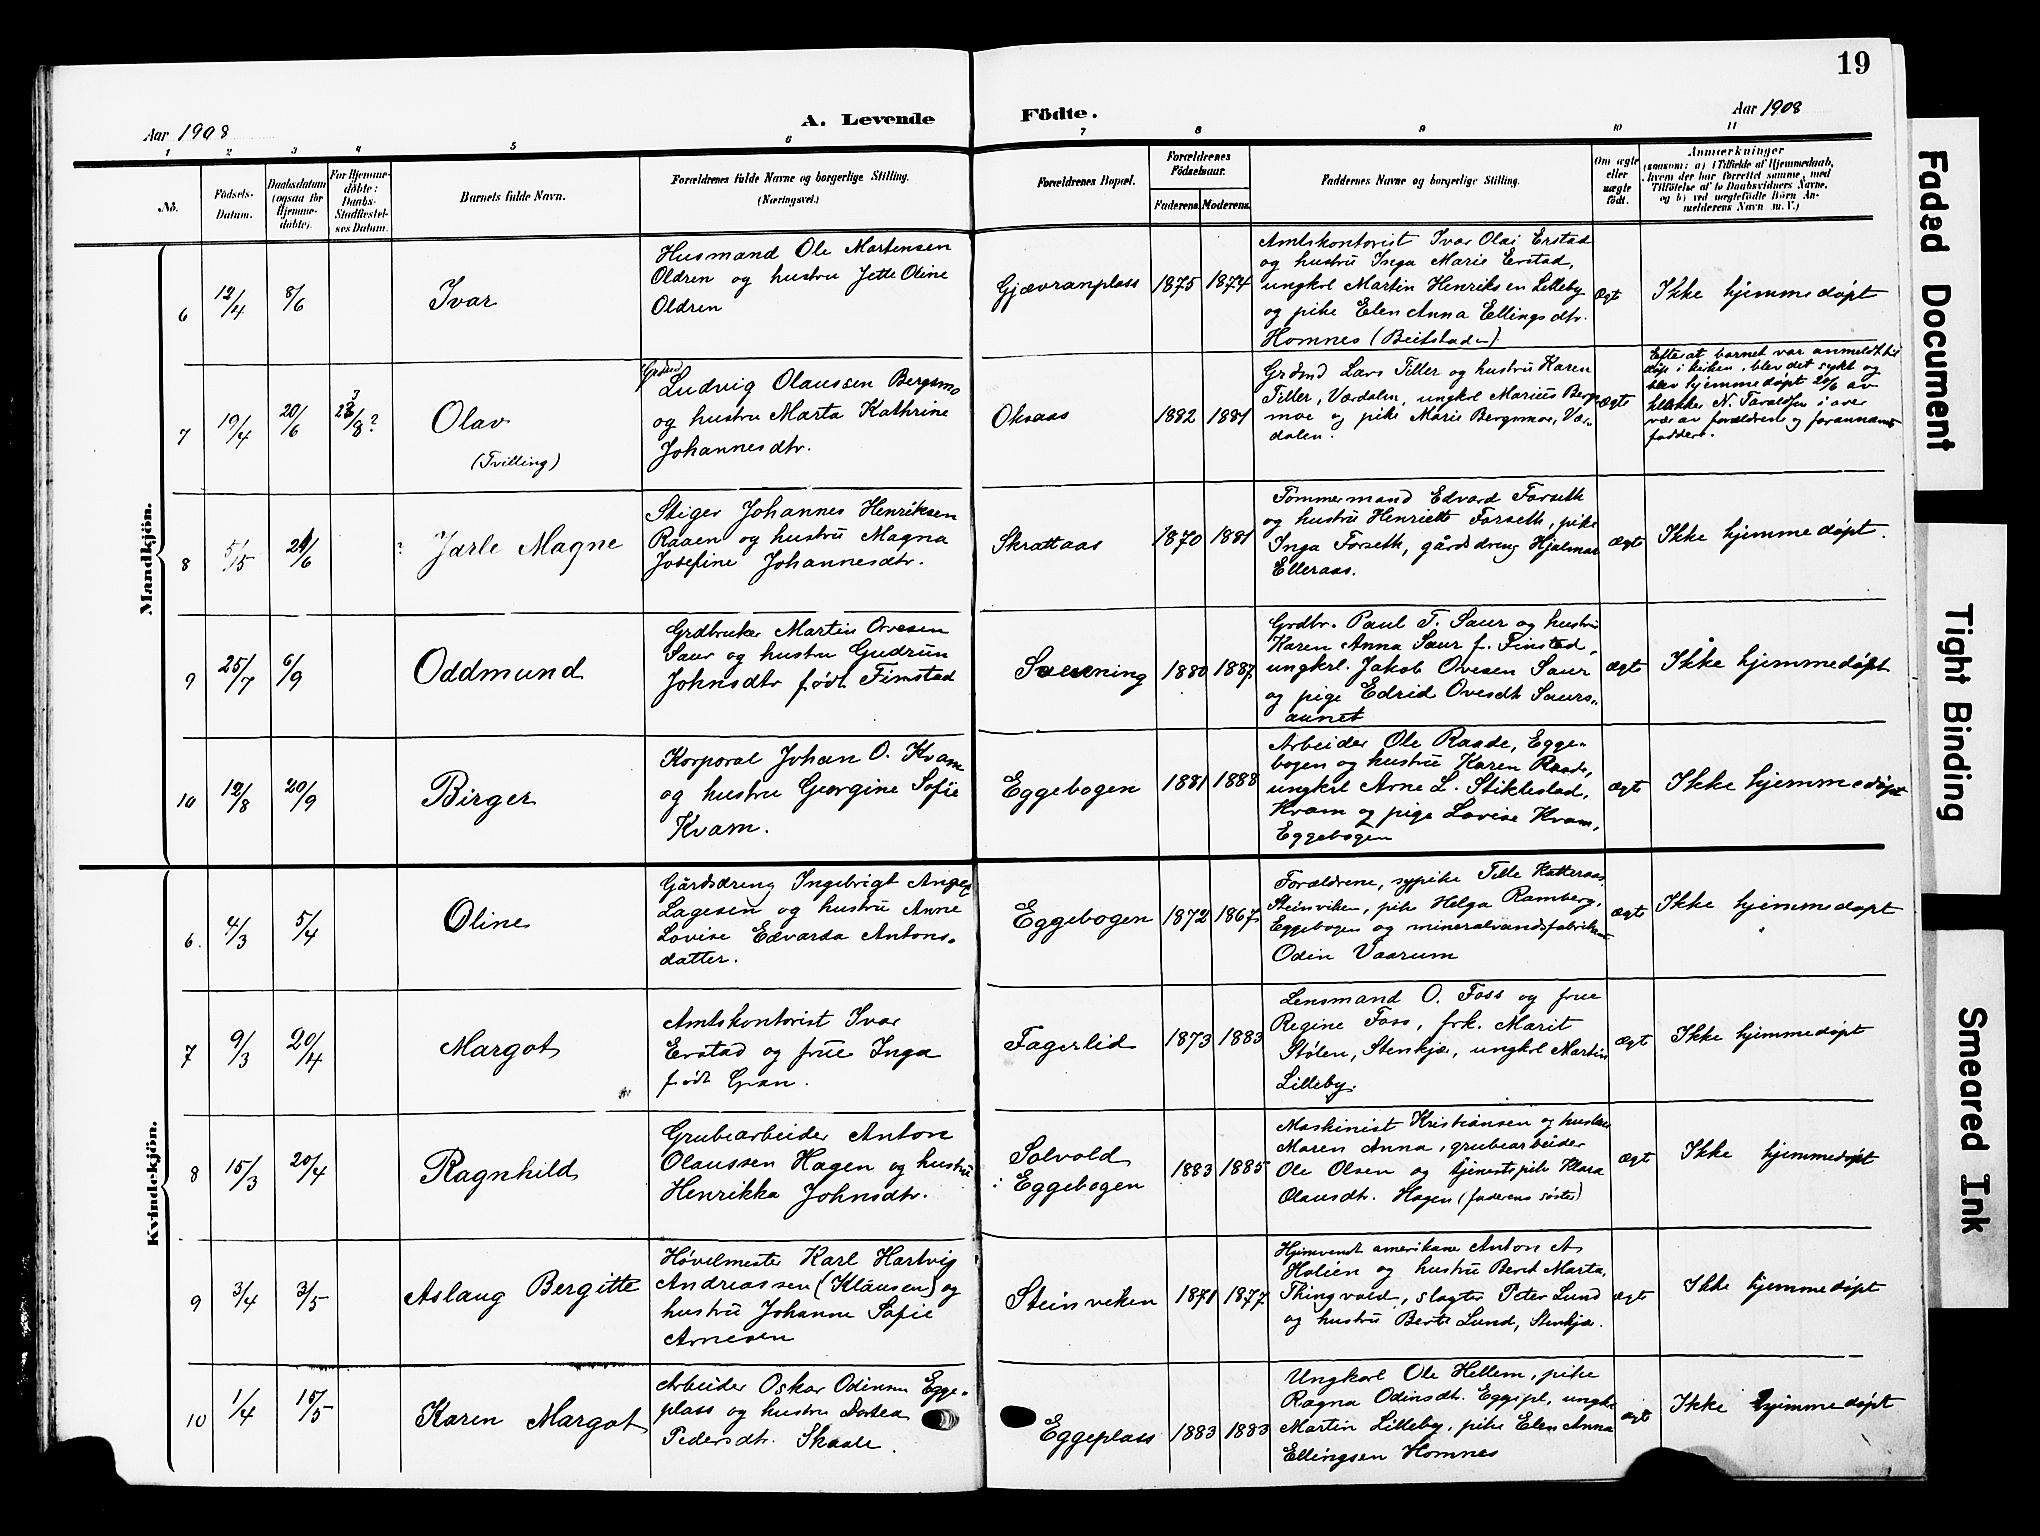 19
Aar 1908
A. Levende
Födte.
Aar 1908
1 2 3 4 5 6 7 8 9 10 11
No.
Födsels-
Datum.
Daabsdatum
(ogsaa for
Hjemme-
döbte).
For Hjemme-
döbte:
Daabs-
Stadfæstel-
ses Datum.
Barnets fulde Navn.
Forældrenes fulde Navne og borgerlige Stilling.
(Næringsvei.)
Forældrenes Bopæl.
Forældrenes
Födselsaar.
Faderens.
Moderens.
Faddernes Navne og borgerlige Stilling.
Om ægte
eller
uægte
födt.
Anmærkninger
(saasom: a) i Tilfælde af Hjemmedaab,
hvem der har forrettet samme, med
Tilföielse af to Daabsvidners Navne,
og b) ved uægtefödte Börn An-
melderens Navn m. V.)
Mandkjön.
6
12/4
8/6
Ivar
Husmand Ole Martensen
Oldren og hustru Jette Oline
Oldren
Gjævranplass
1875
1874
Amtskontorist Ivar Olai Erstad
og hustru Inga Marie Erstad,
ungkrl Martin Henriksen Lilleby
og pike Elen Anna Ellingsdtr.
Homnes (Beitstaden)
Ægt
Ikke hjemmedøpt
7
19/4
20/6
Olav
(Tvilling)
Ludvig Olaussen Bergsmo
og hustru Marta Kathrine
Johannesdtr.
Oksaas
1882
1881
Grdmd Lars Tiller og hustru Karen
Tiller, Værdalen, ungkrl Marius Bergs
moe og pike Marie Bergsmoe, Vær-
dalen.
ægte
Efterat barnet var anmeldt til
døp i kirken, blev det sykt og
blev hjemmedøpt 20/6 av
klokker N. Taraldsen i over
vær av forældrene og forannævnte
faddere.
8
5/15
21/6
Jarle Magne
Stiger Johannes Henriksen
Raaen og hustru Magna
Josefine Johannesdtr.
Skrattaas
1870
1881
Tømmermand Edvard Forseth
og hustru Henriette Forseth, pike
Inga Forseth, gårdsdreng Hjalmar
Elleraas.
ægt
Ikke hjemmedøpt.
9
25/7
6/9
Oddmund
Grdbruker Martin Ovesen
Saur og hustru Gudrun
Johnsdtr født Fimstad
1880
1887
Grdbr. Paul T. Saur og hustru
Karen Anna Saur f. Finstad,
ungkrl. Jakob Ovesen Saur
og pige Edrid Ovesdt Saurs-
aunet
ægt
Ikke hjemmedøpt
10
12/8
20/9
Birger
Korporal Johan O. Kvam
og hustru Georgine Sofie
Kvam.
Eggebogen
1881
1888
Arbeider Ole Raade, Egge-
bogen og hustru Karen Raade,
ungkrl Arne L. Stiklestad,
Kvam og pige Lovise Kvam,
Eggebogen
ægt
Ikke hjemmedøpt
Kvindekjön.
6.
4/3
5/4
Oline
Gårdsdreng Ingebrigt
Lagesen og hustru Anne
Lovise Edvarda Antons-
datter.
Eggebogen
1872
1867
Forældrene, sypike Tille
Steinviken, pike Helga Ramberg,
Eggebogen og mineralvandsfabrikant
Odin Vaarum
ægt
Ikke hjemmedøpt
7
9/3
20/4
Margot
Amtskontorist Ivar
Erstad og frue Inga
født Gran.
Fagerlid
1873
1883
Lensmand O. Foss og frue
Regine Foss, frk. Marit
Stølen, Stenkjær, ungkrl Martin
Lilleby.
ægt
Ikke hjemmedøpt
8
15/3
20/4
Ragnhild
Grubearbeider Anton
Olaussen Hagen og hustru
Henrikka Johnsdtr.
Solvold
i Eggebogen
1883
1885
Maskinist Kristiansen og hustru
Maren Anna, grubearbeider
Ole Olsen og tjenestepike Klara
Olausdtr. Hagen (faderens søster)
ægt
Ikke hjemmedøpt
9
3/4
3/5
Aslaug Bergitte
Høvelmester Karl Hartvig
Andreassen (Klausen) og
hustru Johanne Sofie
Arnesen
Steinviken
1871
1877
Hjemvendt amerikaner Anton A
Holien og hustru Beret Marta,
Thingvold, slagter Peter Lund
og hustru Berte Lund, Stenkjær.
ægt
Ikke hjemmedøpt
10
1/4
15/5
Karen Margot
Arbeider Oskar Odinsen Egge-
plass og hustru Dortea
Pedersdtr. Skaale.
Eggeplass
1883
1883
Ungkarl Ole Hellem, pike
Ragna Odinsdt. Eggepl, ungkr
Martin Lilleby, pike Elen Anna
Ellingsen Homnes
ægt
Ikke hjemmedøpt
Faded Document
Tight Binding
Smeared Ink